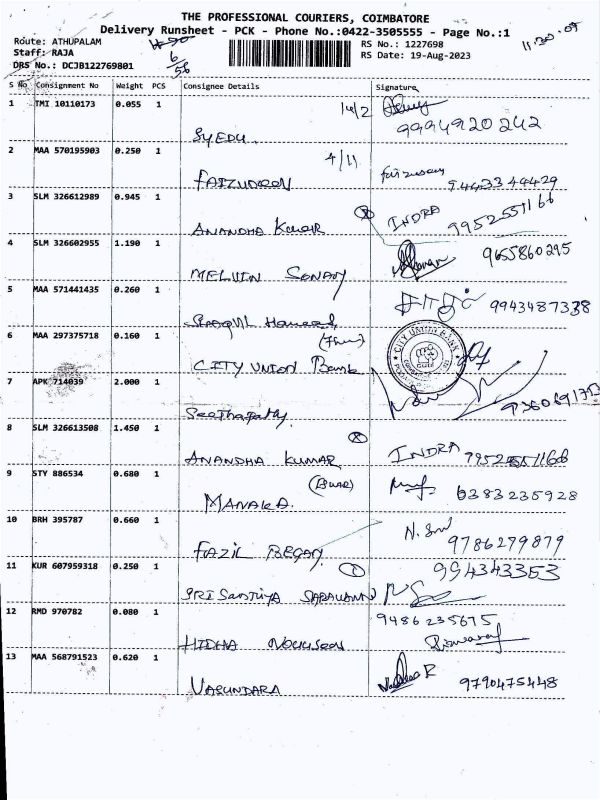 THE PROFESSIONAL COURIERS, COIMBATORE
Delivery Runsheet - PCK - Phone No.:0422-3505555 - Page No.:1
Route: ATHUPALAM
Staff: RAJA
DRS No.: DCJB122769801
6
56
RS No.: 1227698
RS Date: 19-Aug-2023
S No Consignment No Weight PCS Consignee Details Signature
1 TMI 10110173 0.055 1 14/2
SYEDU 9994920242
2 MAA 570195903 0.250 1 4/11
FAIZUDEEN 9443344429
3 SLM 326612989 0.945 1 INDRA
ANANDHA KUMAR 9952551166
4 SLM 326602955 1.190 1 9655860295
MELVIN
5 MAA 571441435 0.260 1 9943487338
6 MAA 297375718 0.160 1
CITY UNION Bank CITY UNION BANK
7 APK 714039 2.000 1
Seethapathy
8 SLM 326613508 1.450 1
ANANDHA KUMAR INDRA
9 STY 886534 0.680 1
6383235928
10 BRH 395787 0.660 1
FAZIL BEGAM 9786279879
11 KUR 607959318 0.250 1 994343353
SRI
12 RMD 970782 0.080 1 9486235675
HIDHA
13 MAA 568791523 0.620 1
VASUNDARA 9790475448